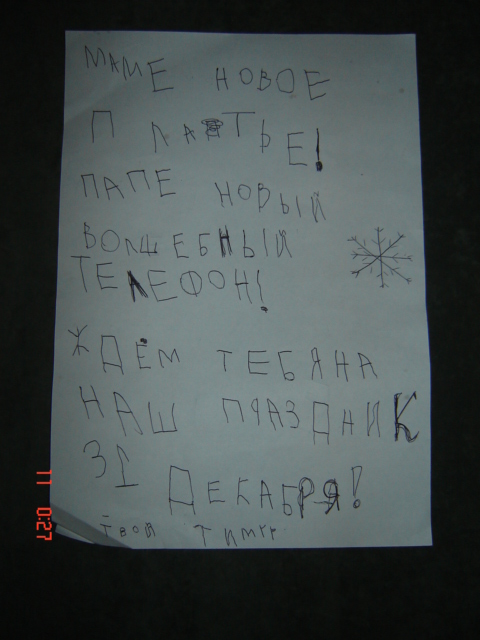 МАМЕ НОВОЕ
ПЛАТЬЕ!
ПАПЕ НОВЫЙ
ВОЛШЕБНЫЙ
ТЕЛЕФОН!
ЖДЁМ ТЕБЯ НА
НАШ ПРАЗДНИК
31 ДЕКАБРЯ!
ТВОЙ ТИМУР
11 0:27